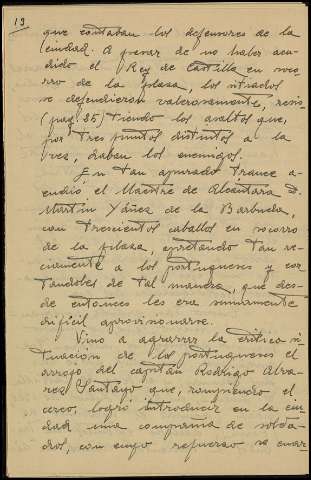 13
que contaban los defensores de la
ciudad. A pesar de no haber acu-
dido el Rey de Castilla en soco-
rro de la plaza, los sitiados
se defendieron valerosamente, resis-
(pag 35) tiendo los asaltos que,
por tres puntos distintos a la
vez, daban los enemigos.
En tan apurado trance a-
cudió el Maestre de Alcantara D.
Martín Yáñez de la Barbuda,
con trescientos caballos en socorro
de la plaza, apretando tan re-
ciamente a los portugueses y cor
tandoles de tal manera, que des-
de entonces les era sumamente
dificil aprovisionarse.
Vino a agravar la critica si
tuación de los portugueses el
arrojo del capitán Rodrigo Alva-
rez Santoyo que, rompiendo el
cerco, logró introducir en la ciu
dad una compañia de solda-
dos, con cuyo refuerzo se enar-